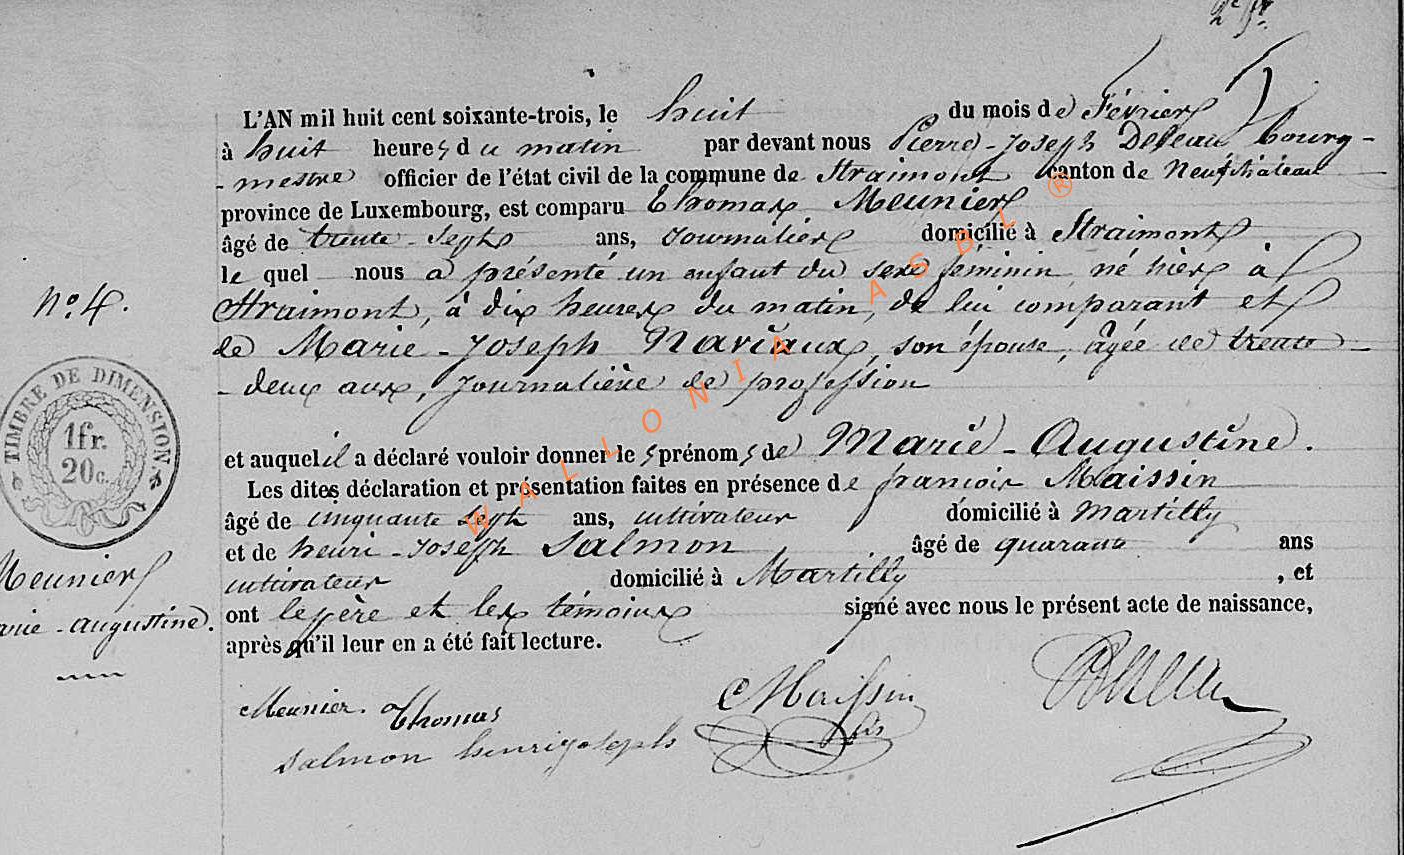 L'AN mil huit cent soixante-trois, le huit du mois de Février
à huit heures du matin par devant nous Pierre-Joseph Deleau bourg-
-mestre officier de l'état civil de la commune de Straimont canton de Neufchâteau
province de Luxembourg, est comparu Thomas Meunier
âgé de trente-sept ans, Journalier domicilié à Straimont
lequel nous a présenté un enfant du sexe féminin né hier à
Straimont, à dix heures du matin, de lui comparant et
N° 4.
de Marie-Joseph Naviaux, son épouse, âgée de trente-
-deux ans, Journalière de profession
TIMBRE DE DIMENSION
1fr.
20c.
et auquel il a déclaré vouloir donner les prénoms de Marie-Augustine.
Les dites déclaration et présentation faites en présence de francois Maissin
âgé de cinquante sept ans, cultivateur domicilié à Martilly
et de henri-Joseph Salmon âgé de quarante ans
cultivateur domicilié à Martilly, et
Meunier
ont le père et les témoins signé avec nous le présent acte de naissance,
arie-augustine.
après qu'il leur en a été fait lecture.
Meunier Thomas
Maissin
salmon henrijoseph
WALLONIA ASBL ®